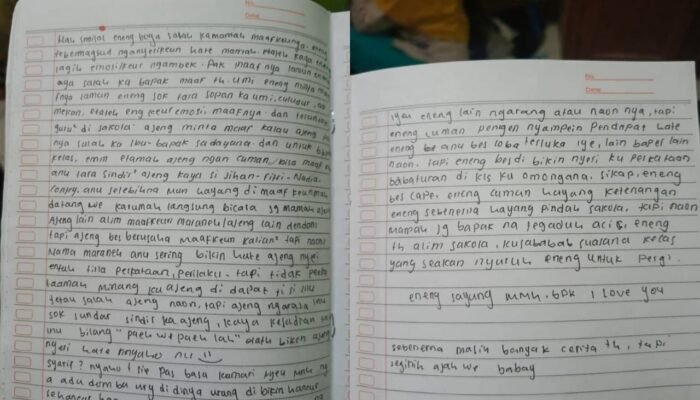 No.
Date.
Mah smisal eneng boga salah kamamah maafkeunya. eneng
teu bermaqsud nganyerikeun hate mamah. etateh kaya eneng
lagih emosi/keur ngambek. Pak maaf nya lamun eneng
aya salah ka bapak maaf th. umi eneng minta maaf
nya lamun eneng sok tara sopan ka umi. culudur,
mekan. etateh eng keur emosi. maafnya. dan teruntuk
guru² di sakola ajeng minta maaf kalau ajeng
nya salah ka Ibu-bapak sadayana. dan untuk
kelas, emm etamah ajeng ngan cuman bisa maaf
anu lara sindir² ajeng kaya si Jihan-Fitri-Nadia.
anu selebihna mun hayang di maafkeunmah
datang we karumah langsung bicara jg mamah ajeng
Ajeng lain alim maafkeun maraneh/ajeng lain dendam
tapi ajeng bes berusaha maafkeun kalian² tapi naon
Nama maraneh anu sering bikin hate ajeng nyeri
entah tina perkataan, perilaku. tapi tidak
taamah minang ku ajeng di dapat ti si inu
teuau salah ajeng naon, tapi ajeng ngarasa inu
sok sundar sindir ka ajeng, kaya kejadian
inu bilang "paeh we paeh lah" etateh biken ajeng
nyeri hate
syarif? nyaho t sie pas basa kamari
a adu domba wsy di dinya urang di bikin hancur
sehancur
No.
Date.
iyeu eneng lain ngarang atau naon nya, tapi
eneng cuman pengen nyampein pendapat hate
eneng anu bes loba terluka iye, lain baper lain
naon. tapi eneng bes di bikin nyeri ku perkataan
babaturan di kls ku omongana, sikap, eneng
bes cape, eneng cuman hayang ketenangan
eneng sebenerna hayang pindah sakola, tapi naon
mamah jg bapak na
th alim sakola, kusabab suasana kelas
yang seakan nyuruh eneng untuk pergi.
eneng sayang mmh. bpk I love you
sebenerna masih banyak cerita th, tapi
segitih ajah we babay